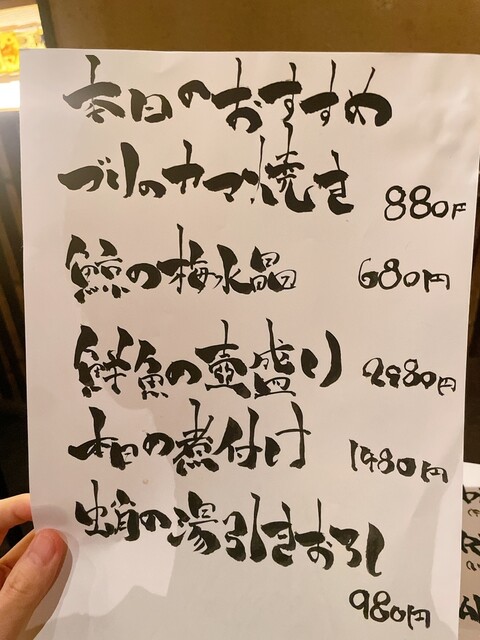 本日のおすすめ
ブリのカマ焼き 880円
鯨の梅水晶 680円
鮮魚の壺盛り 2980円
本日の煮付け 1480円
蛸の湯引きおろし
980円